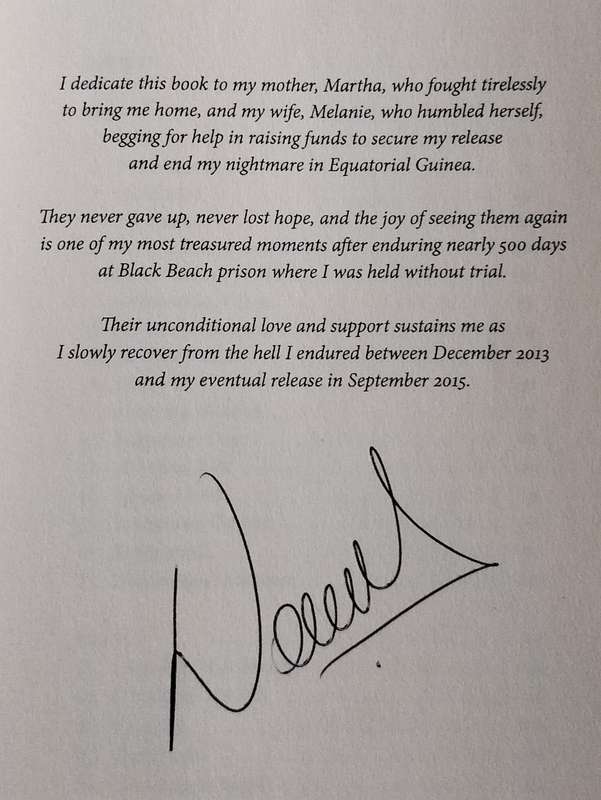 I dedicate this book to my mother, Martha, who fought tirelessly
to bring me home, and my wife, Melanie, who humbled herself,
begging for help in raising funds to secure my release
and end my nightmare in Equatorial Guinea.
They never gave up, never lost hope, and the joy of seeing them again
is one of my most treasured moments after enduring nearly 500 days
at Black Beach prison where I was held without trial.
Their unconditional love and support sustains me as
I slowly recover from the hell I endured between December 2013
and my eventual release in September 2015.